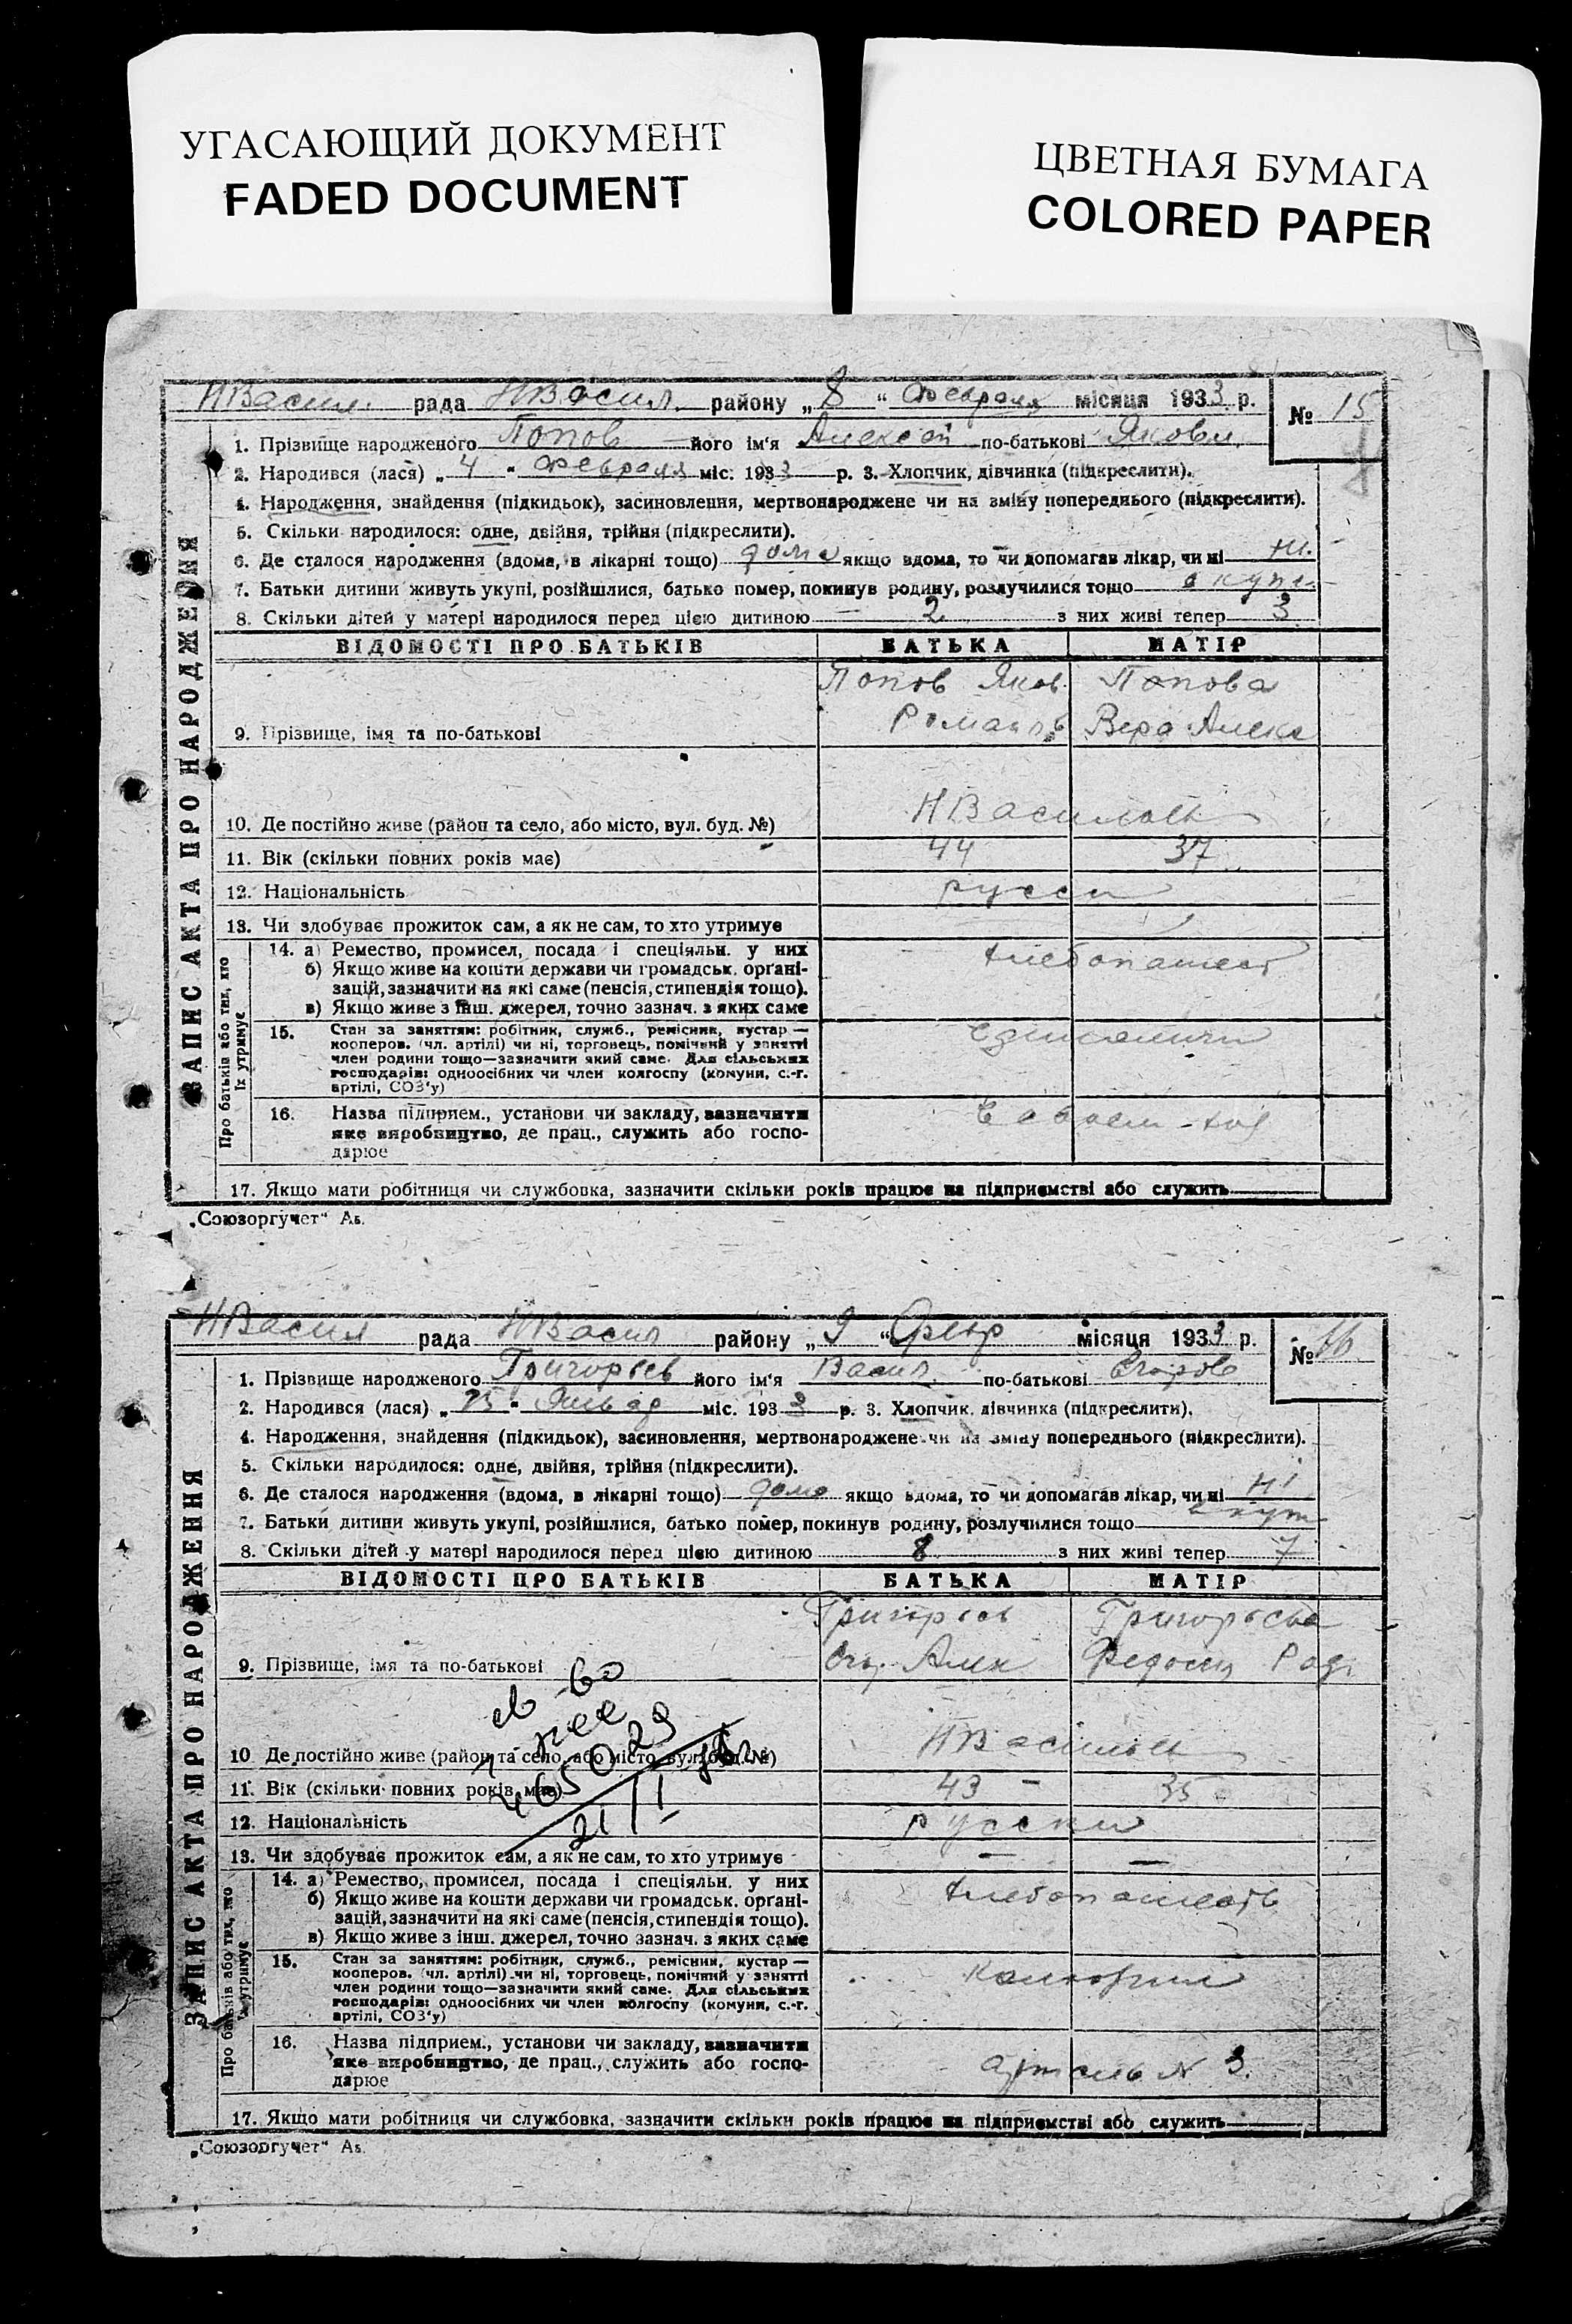 УГАСАЮЩИЙ ДОКУМЕНТ
FADED DOCUMENT
ЦВЕТНАЯ БУМАГА
COLORED PAPER
НВасил. рада НВасил. району „8“ Февраля місяця 1933 р. № 15
ЗАПИС АКТА ПРО НАРОДЖЕННЯ
1. Прізвище народженого Попов його ім‘я Алексей по-батькові Яковл.
2. Народився (лася) „4“ Февраля міс. 1933 р. 3. Хлопчик, дівчинка (підкреслити).
4. Народження, знайдення (підкидьок), засиновлення, мертвонароджене чи на зміну попереднього (підкреслити).
5. Скільки народилося: одне, двійня, трійня (підкреслити).
6. Де сталося народження (вдома, в лікарні тощо) дома якщо вдома, то чи допомагав лікар, чи ні ні.
7. Батьки дитини живуть укупі, розійшлися, батько помер, покинув родину, розлучилися тощо
8. Скільки дітей у матері народилося перед цією дитиною 2 з них живі тепер 3
ВІДОМОСТІ ПРО БАТЬКІВ БАТЬКА МАТІР
Попов Яков. Попова
9. Прізвище, імя та по-батькові Романов Вера Алекс
10. Де постійно живе (район та село, або місто, вул. буд. №) НВасильевк
11. Вік (скільки повних років має) 44 37
12. Національність русск
13. Чи здобуває прожиток сам, а як не сам, то хто утримує
Про батьків або тих, хто їх утримує
14. а) Ремество, промисел, посада і спеціяльн. у них
б) Якщо живе на кошти держави чи громадськ. органі-
зацій, зазначити на які саме (пенсія, стипендія тощо).
в) Якщо живе з інш. джерел, точно зазнач. з яких саме
15. Стан за заняттям: робітник, служб., ремісник, кустар —
кооперов. (чл. артілі) чи ні, торговець, помічний у занятті
член родини тощо—зазначити який саме. Для сільських
господарів: одноосібних чи член колгоспу (комуни, с.-г.
артілі, СОЗ‘у)
16. Назва підприєм., установи чи закладу, зазначити
яке виробництво, де прац., служить або госпо-
дарює
17. Якщо мати робітниця чи службовка, зазначити скільки років працює на підприємстві або служить
„Союзоргучет“ Ав.
НВасил рада НВасил району „9“ Февр місяця 1933 р. № 16
ЗАПИС АКТА ПРО НАРОДЖЕННЯ
1. Прізвище народженого Григорьев його ім‘я Васил. по-батькові Егоров
2. Народився (лася) „25“ Январ міс. 1933 р. 3. Хлопчик, дівчинка (підкреслити).
4. Народження, знайдення (підкидьок), засиновлення, мертвонароджене чи на зміну попереднього (підкреслити).
5. Скільки народилося: одне, двійня, трійня (підкреслити).
6. Де сталося народження (вдома, в лікарні тощо) дома якщо вдома, то чи допомагав лікар, чи ні ні
7. Батьки дитини живуть укупі, розійшлися, батько помер, покинув родину, розлучилися тощо
8. Скільки дітей у матері народилося перед цією дитиною 8 з них живі тепер 7
ВІДОМОСТІ ПРО БАТЬКІВ БАТЬКА МАТІР
Григорьев Григорьева
9. Прізвище, імя та по-батькові Егр. Алек Федосия Род.
10. Де постійно живе (район та село, або місто, вул. буд. №) НВасильевк
11. Вік (скільки повних років має) 43 35
12. Національність русски
13. Чи здобуває прожиток сам, а як не сам, то хто утримує — —
Про батьків або тих, хто їх утримує
14. а) Ремество, промисел, посада і спеціяльн. у них
б) Якщо живе на кошти держави чи громадськ. органі-
зацій, зазначити на які саме (пенсія, стипендія тощо).
в) Якщо живе з інш. джерел, точно зазнач. з яких саме
15. Стан за заняттям: робітник, служб., ремісник, кустар —
кооперов. (чл. артілі) чи ні, торговець, помічний у занятті
член родини тощо—зазначити який саме. Для сільських
господарів: одноосібних чи член колгоспу (комуни, с.-г.
артілі, СОЗ‘у)
16. Назва підприєм., установи чи закладу, зазначити
яке виробництво, де прац., служить або госпо- артель № 3.
дарює
17. Якщо мати робітниця чи службовка, зазначити скільки років працює на підприємстві або служить
„Союзоргучет“ Ав.